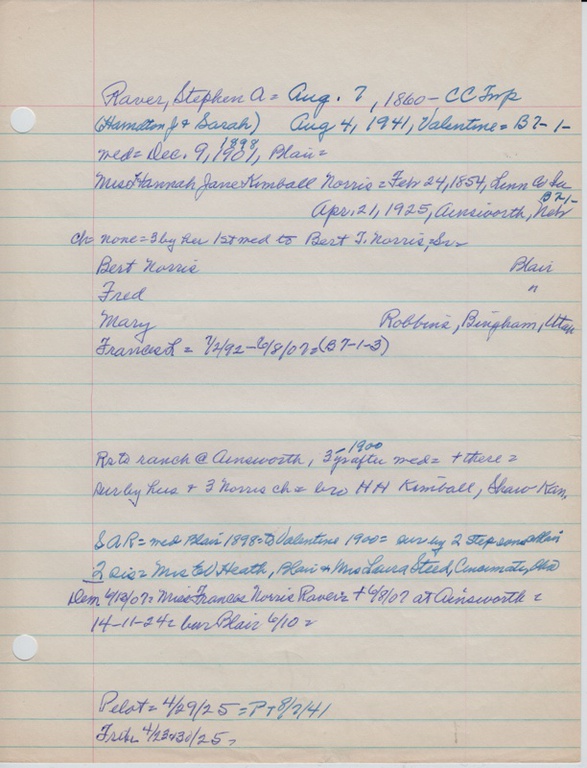 Raver, Stephen A = Aug. 7, 1860 - CC Twp
(Hamilton J & Sarah) Aug 4, 1941, Valentine = B7-1-
1898
med = Dec. 9, 1901, Blair =
Miss Hannah Jane Kimball Norris = Feb 24, 1854, Linn Co Ia
B7-1-
Apr. 21, 1925, Ainsworth, Neb
Ch = none = 3 by her 1st med to Bert T. Norris, Sr =
Bert Norris Blair
Fred "
Mary Robbins, Bingham, Utah
Frances L = 7/2/92 - 6/8/07 = (B7-1-3)
1900
ranch @ Ainsworth, 3 yrs after med = + there =
sur by hus + 3 Norris ch = bro HH Kimball, Shaw Kan,
SAR = med Blair 1898 = to Valentine 1900 = sur by 2 stepsons Blair
2 sis = Mrs EV Heath, Blair + Mrs Laura Steed, Cincinnati, Ohio
Dem 6/13/07 = Miss Frances Norris Raver = + 6/8/07 at Ainsworth =
14-11-24 = bur Blair 6/10 =
Pilot = 4/29/25 = P+ 8/7/41
Trib = 4/23 & 30/25 =